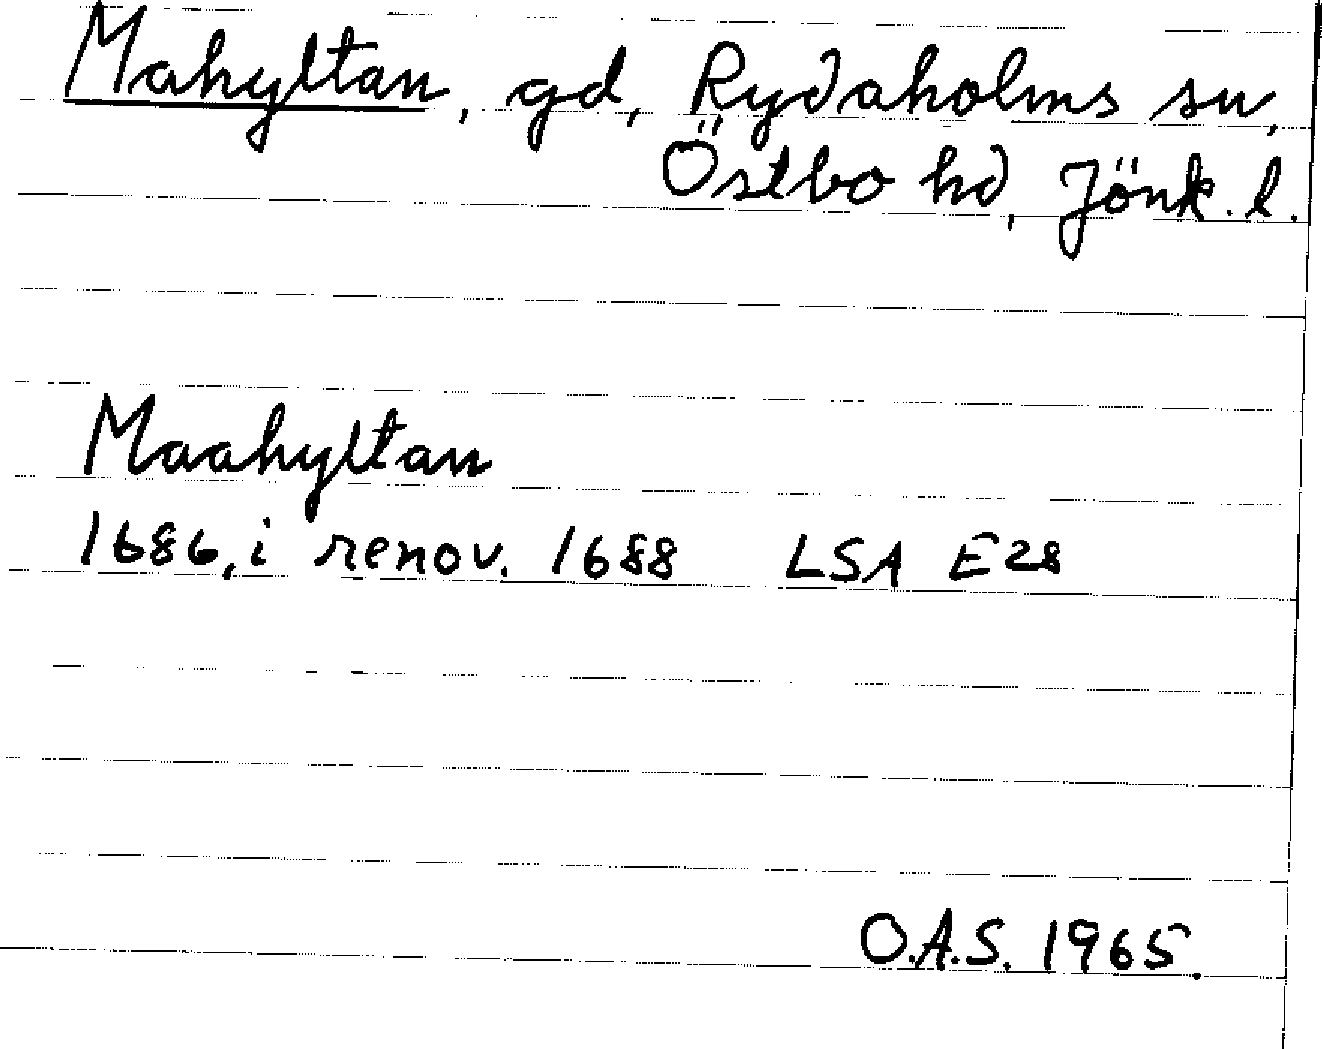 Mahyltan, gd, Rydaholms sn,
Östbo hd, Jönk. l.
Maahyltan
1686, i renov. 1688 LSA E28
O.A.S. 1965.